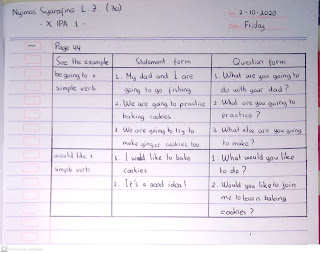 Nyimas Syarafina L. Z. (30)
- X IPA 1 -
No. 2-10-2020
Date. Friday
Page 44
See the example
Statement form
Question form
be going to +
simple verb
1. My dad and I are
going to go fishing
2. We are going to practice
baking cookies
3. We are going to try to
make ginger cookies too
1. What are you going to
do with your dad?
2. What are you going to
practice?
3. What else are you going
to make?
would like +
simple verb
1. I would like to bake
cookies
2. It's a good idea!
1. What would you like
to do?
2. Would you like to join
me to learn baking
cookies?